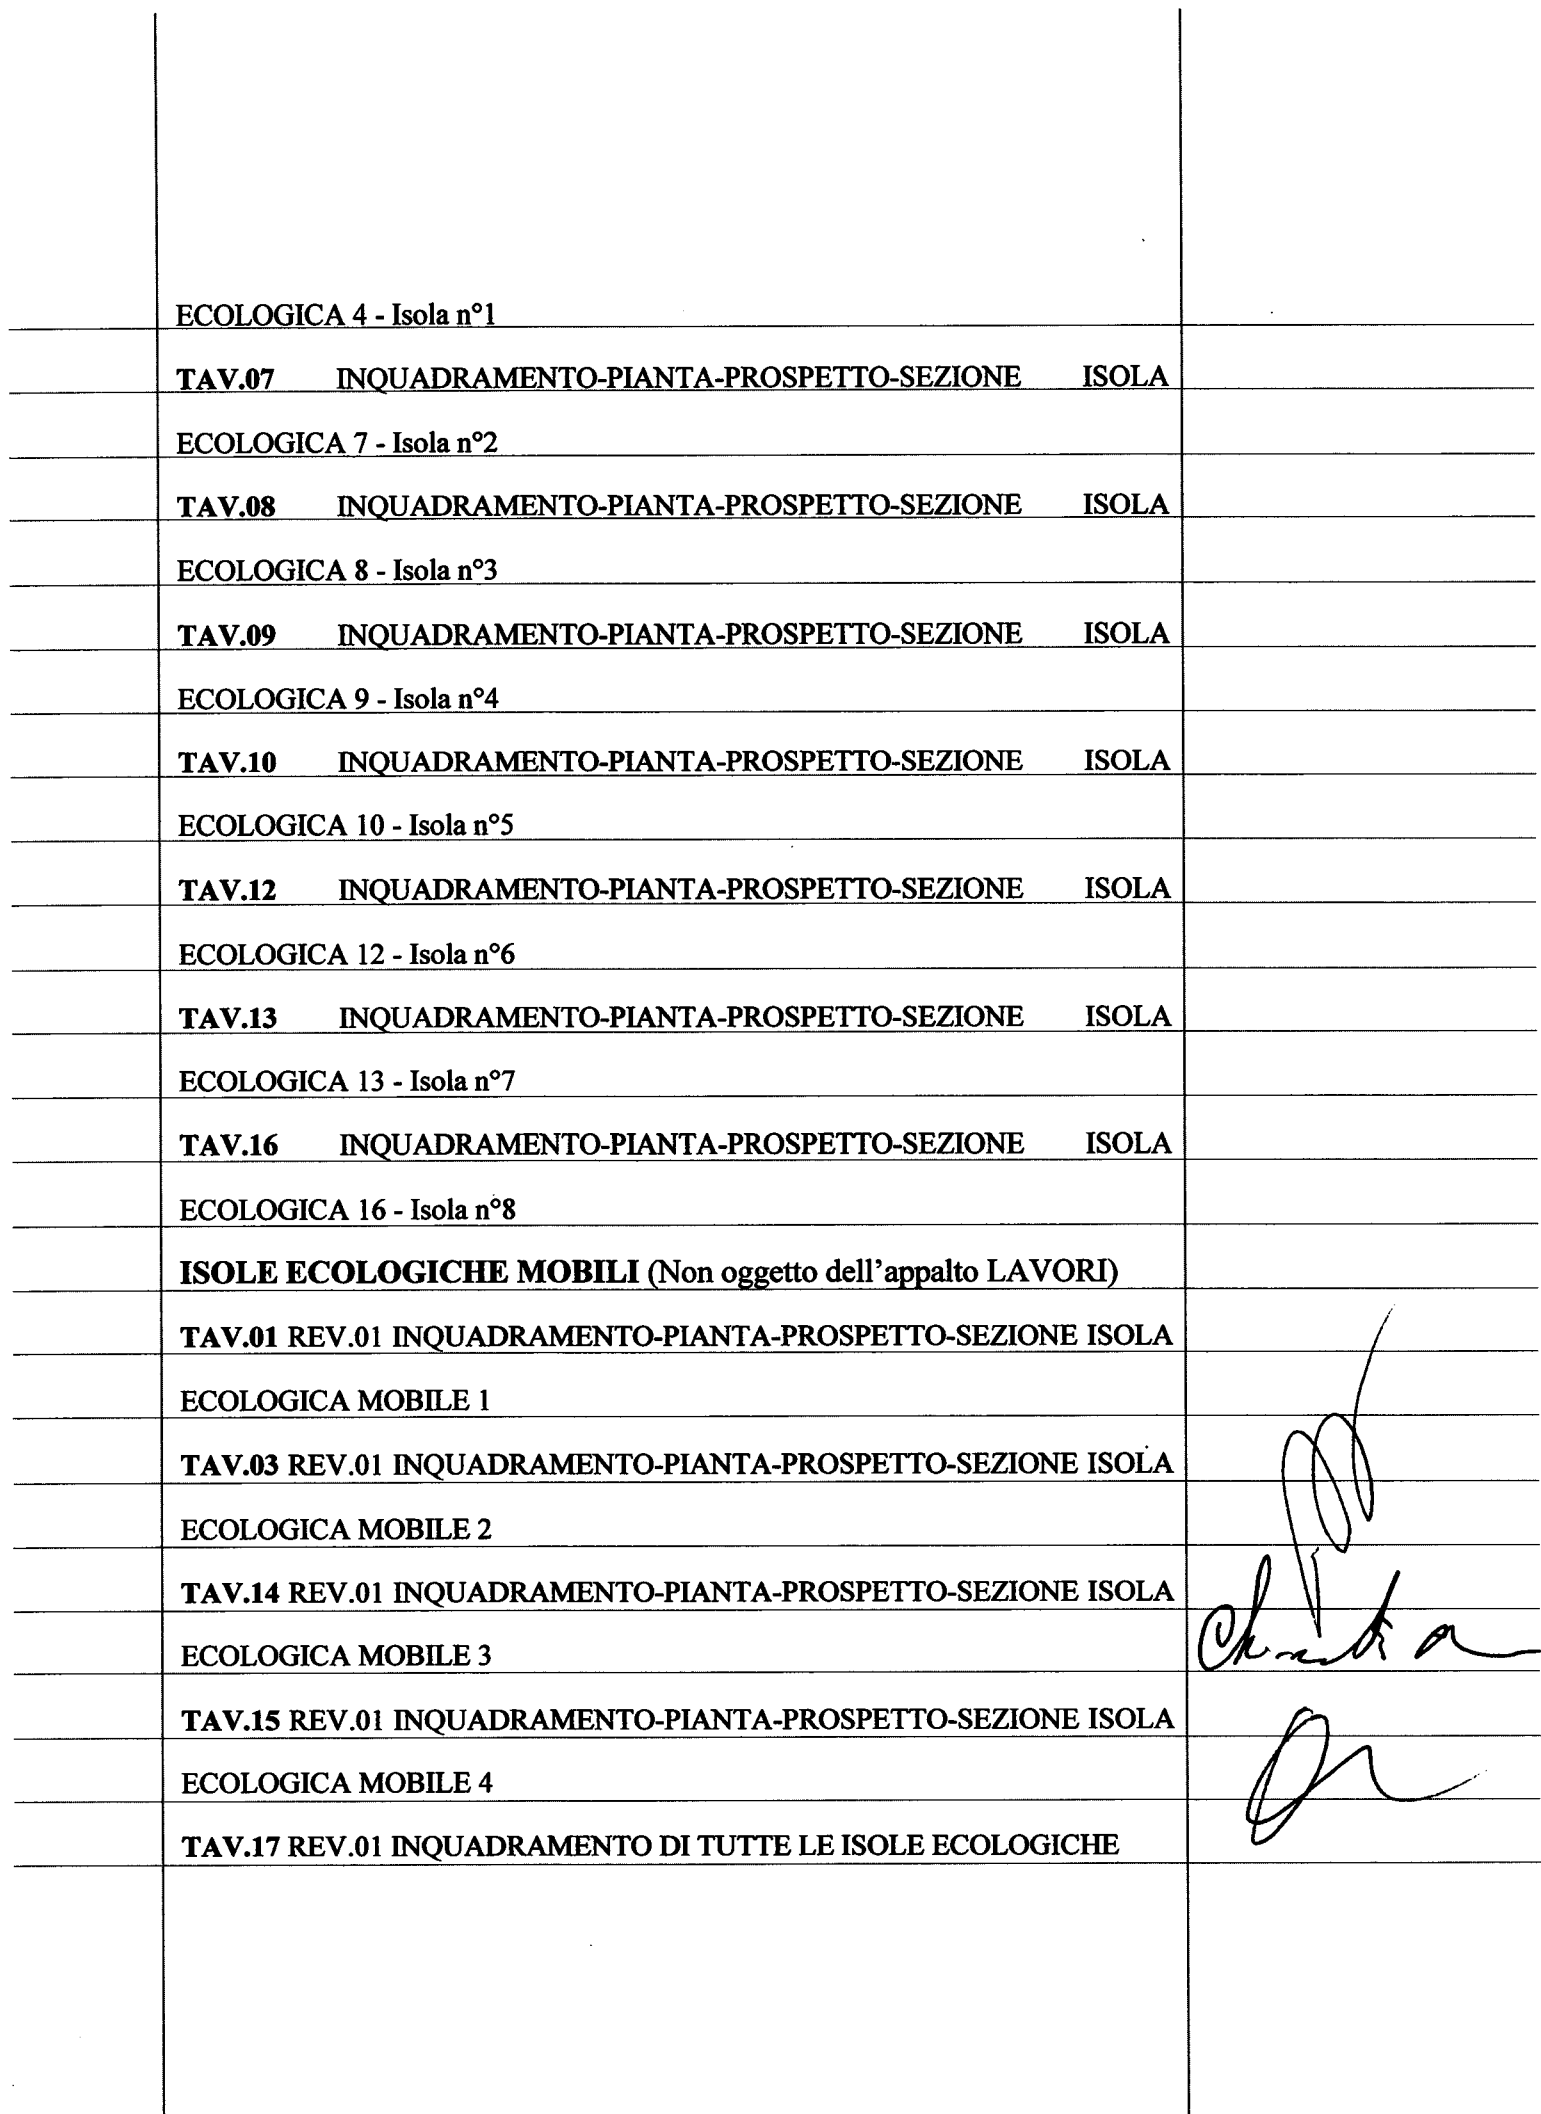 ECOLOGICA 4 - Isola n°1
TAV.07 INQUADRAMENTO-PIANTA-PROSPETTO-SEZIONE ISOLA
ECOLOGICA 7 - Isola n°2
TAV.08 INQUADRAMENTO-PIANTA-PROSPETTO-SEZIONE ISOLA
ECOLOGICA 8 - Isola n°3
TAV.09 INQUADRAMENTO-PIANTA-PROSPETTO-SEZIONE ISOLA
ECOLOGICA 9 - Isola n°4
TAV.10 INQUADRAMENTO-PIANTA-PROSPETTO-SEZIONE ISOLA
ECOLOGICA 10 - Isola n°5
TAV.12 INQUADRAMENTO-PIANTA-PROSPETTO-SEZIONE ISOLA
ECOLOGICA 12 - Isola n°6
TAV.13 INQUADRAMENTO-PIANTA-PROSPETTO-SEZIONE ISOLA
ECOLOGICA 13 - Isola n°7
TAV.16 INQUADRAMENTO-PIANTA-PROSPETTO-SEZIONE ISOLA
ECOLOGICA 16 - Isola n°8
ISOLE ECOLOGICHE MOBILI (Non oggetto dell'appalto LAVORI)
TAV.01 REV.01 INQUADRAMENTO-PIANTA-PROSPETTO-SEZIONE ISOLA
ECOLOGICA MOBILE 1
TAV.03 REV.01 INQUADRAMENTO-PIANTA-PROSPETTO-SEZIONE ISOLA
ECOLOGICA MOBILE 2
TAV.14 REV.01 INQUADRAMENTO-PIANTA-PROSPETTO-SEZIONE ISOLA
ECOLOGICA MOBILE 3
TAV.15 REV.01 INQUADRAMENTO-PIANTA-PROSPETTO-SEZIONE ISOLA
ECOLOGICA MOBILE 4
TAV.17 REV.01 INQUADRAMENTO DI TUTTE LE ISOLE ECOLOGICHE